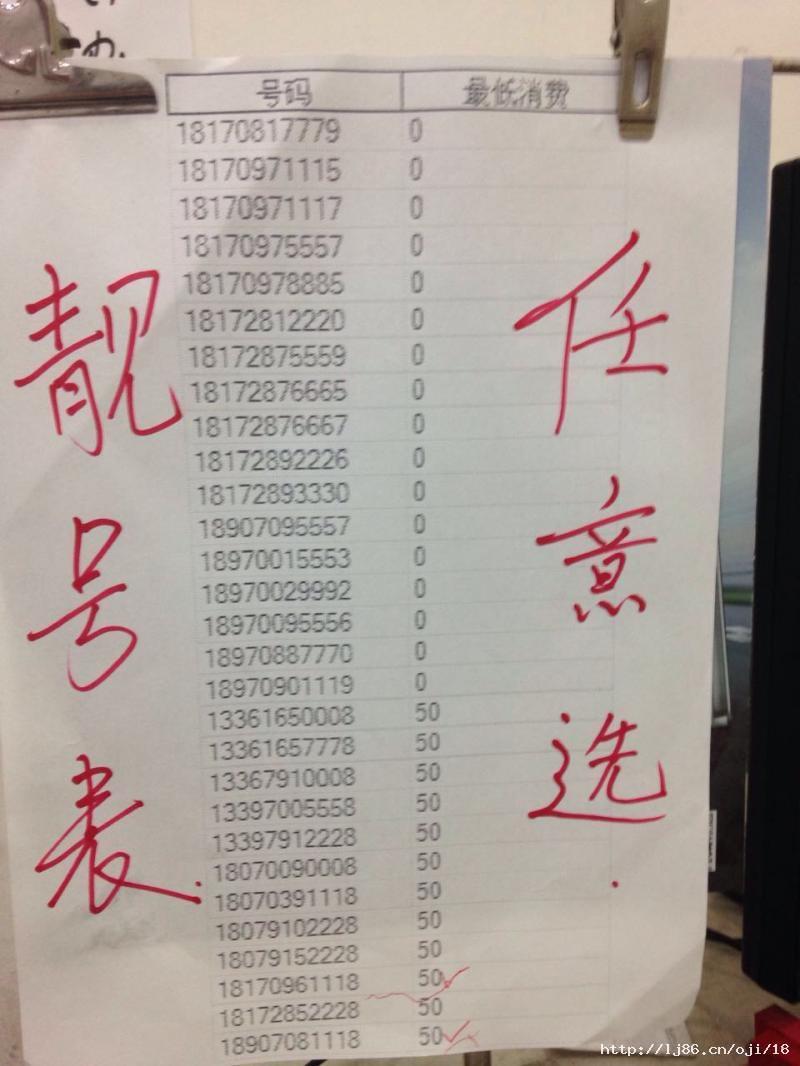 号码 最低消费
18170817779 0
18170971115 0
18170971117 0
18170975557 0
18170978885 0
18172812220 0
18172875559 0
18172876665 0
18172876667 0
18172892226 0
18172893330 0
18907095557 0
18970015553 0
18970029992 0
18970095556 0
18970887770 0
18970901119 0
13361650008 50
13361657778 50
13367910008 50
13397005558 50
13397912228 50
18070090008 50
18070391118 50
18079102228 50
18079152228 50
18170961118 50
18172852228 50
18907081118 50
靓号表.
任意选.
http://lj86.cn/oji/18